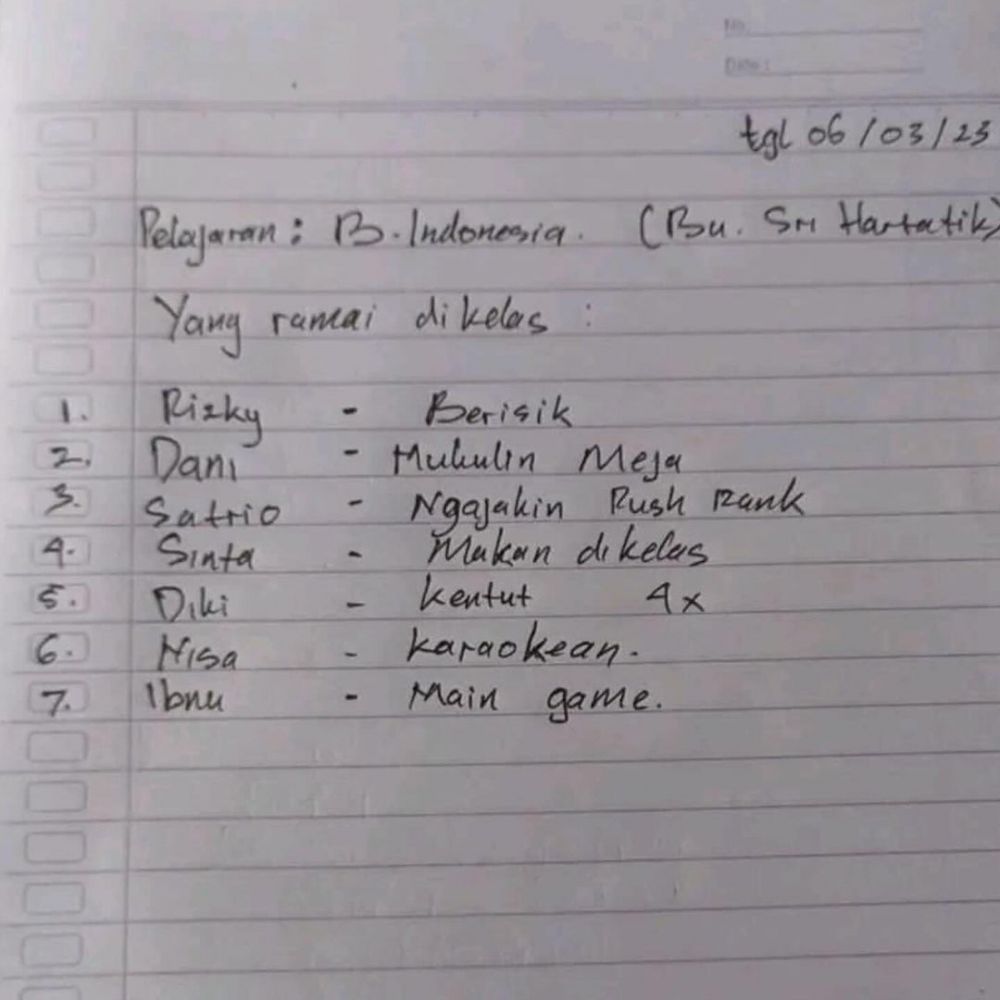 No.
Date:
tgl 06/03/23
Pelajaran: B. Indonesia. (Bu. Sri Hartatik)
Yang ramai di kelas :
1. Rizky - Berisik
2. Dani - Mukulin Meja
3. Satrio - Ngajakin Rush Rank
4. Sinta - Makan di kelas
5. Diki - Kentut 4x
6. Nisa - Karaokean.
7. Ibnu - Main game.